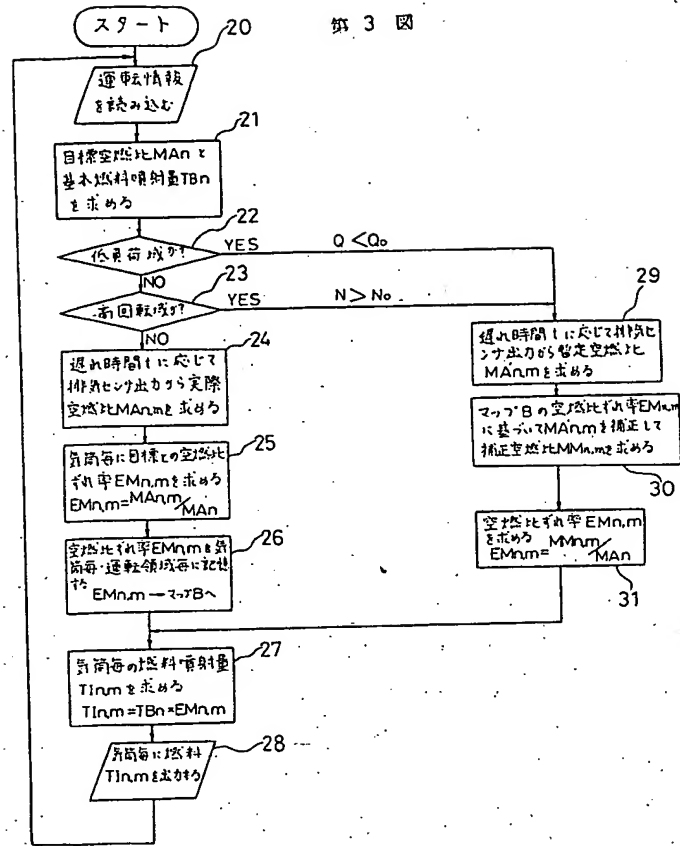 第 3 図
スタート
20
運転情報
を読み込む
21
目標空燃比MAnと
基本燃料噴射量TBn
を求める
22
低負荷域か?
YES
Q<Qo
NO
23
高回転域か?
YES
N>No
NO
24
遅れ時間tに応じて
排気センサ出力から実際
空燃比MAn,mを求める
25
気筒毎に目標との空燃比
ずれ率EMn,mを求める
EMn,m=MAn,m/MAn
26
空燃比ずれ率EMn,mを気
筒毎・運転領域毎に記憶
する
EMn,m→マップBへ
27
気筒毎の燃料噴射量
TIn,mを求める
TIn,m=TBn*EMn,m
28
気筒毎に燃料
TIn,mを出力する
29
遅れ時間tに応じて排気セ
ンサ出力から暫定空燃比
MA'n,mを求める
マップBの空燃比ずれ率EMn,m
に基づいてMA'n,mを補正して
補正空燃比MMn,mを求める
30
空燃比ずれ率EMn,m
を求める
EMn,m=MMn,m/MAn
31